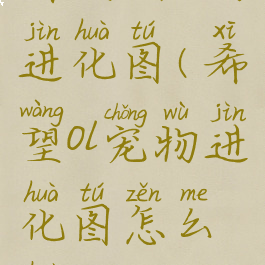 jìn huà tú xī
进化图(希
wàng chǒng wù jìn
望Ol宠物进
huà tú zěn me
化图怎么